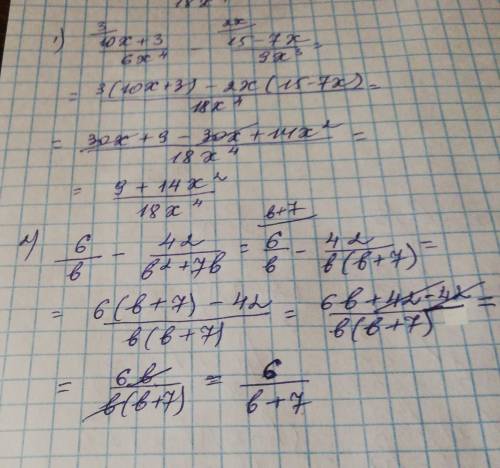 1) 3/ (10x+3)/(6x⁴) 2x/ (15-7x)/(9x³) =
= (3(10x+3) - 2x(15-7x))/(18x⁴) =
= (30x + 9 - 30x + 14x²)/(18x⁴) =
= (9 + 14x²)/(18x⁴)
2) 6/b - 42/(b²+7b) = b+7/ 6/b - 42/(b(b+7)) =
= (6(b+7) - 42)/(b(b+7)) = (6b+42-42)/(b(b+7)) =
= 6b/(b(b+7)) = 6/(b+7)